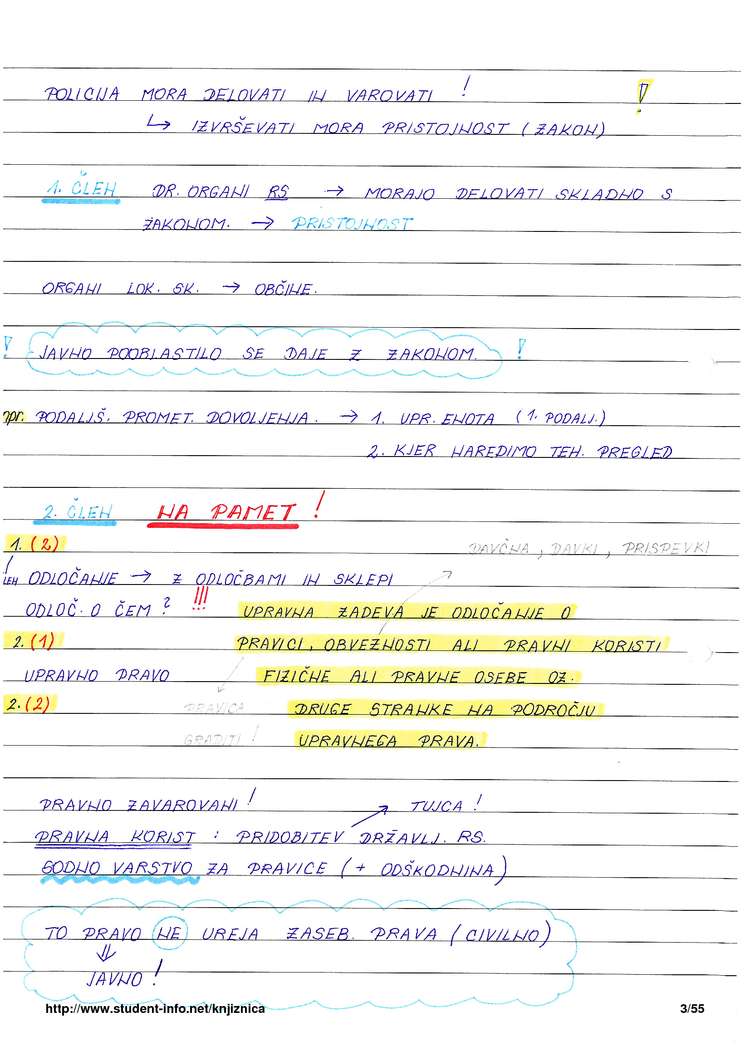 POLICIJA MORA DELOVATI IN VAROVATI ! !
↳ IZVRŠEVATI MORA PRISTOJNOST (ZAKON)
1. ČLEN DR. ORGANI RS → MORAJO DELOVATI SKLADNO S
ZAKONOM. → PRISTOJNOST
ORGANI LOK. SK. → OBČINE.
! JAVNO POOBLASTILO SE DAJE Z ZAKONOM. !
npr. PODALJŠ. PROMET. DOVOLJENJA. → 1. UPR. ENOTA (1. PODALJ.)
2. KJER NAREDIMO TEH. PREGLED
2. ČLEN NA PAMET !
1. (2) DAVČNA, DAVKI, PRISPEVKI
ODLOČANJE → Z ODLOČBAMI IN SKLEPI
ODLOČ. O ČEM ? !!! UPRAVNA ZADEVA JE ODLOČANJE O
2. (1) PRAVICI, OBVEZNOSTI ALI PRAVNI KORISTI
UPRAVNO PRAVO FIZIČNE ALI PRAVNE OSEBE OZ.
2. (2) PRAVICA DRUGE STRANKE NA PODROČJU
GRADITI ! UPRAVNEGA PRAVA.
PRAVNO ZAVAROVANI ! TUJCA !
PRAVNA KORIST : PRIDOBITEV DRŽAVLJ. RS.
SODNO VARSTVO ZA PRAVICE (+ ODŠKODNINA)
TO PRAVO NE UREJA ZASEB. PRAVA (CIVILNO)
⇓
JAVNO !
http://www.student-info.net/knjiznica 3/55